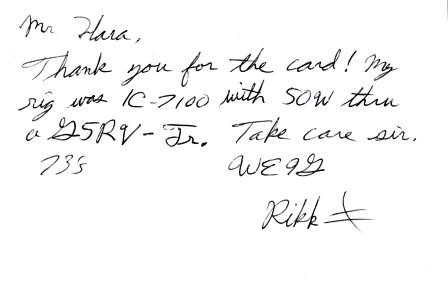 Mr Hara,
Thank you for the card! My
rig was IC-7100 with 50W thru
a G5RV-Jr. Take care sir.
73s WE9G
Rikk